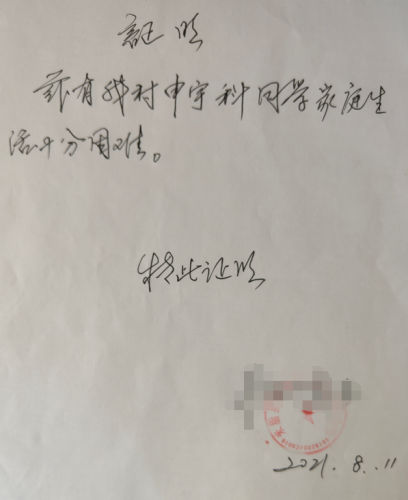 証明
兹有我村申宇科同学家庭生
活十分困难。
特此证明
2021.8.11